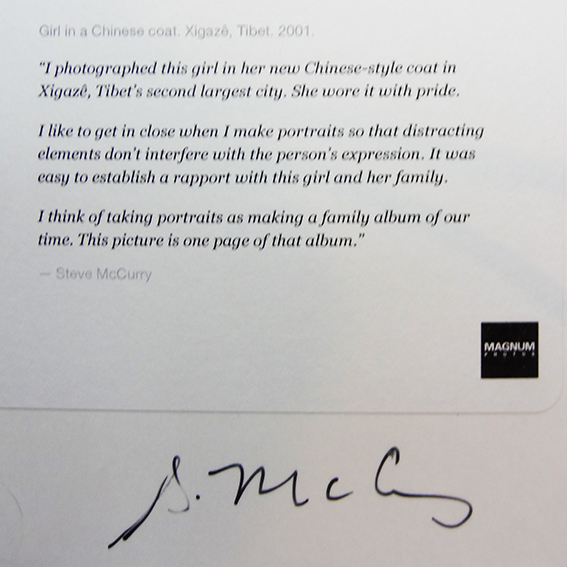 Girl in a Chinese coat. Xigazê, Tibet. 2001.
"I photographed this girl in her new Chinese-style coat in
Xigazê, Tibet's second largest city. She wore it with pride.
I like to get in close when I make portraits so that distracting
elements don't interfere with the person's expression. It was
easy to establish a rapport with this girl and her family.
I think of taking portraits as making a family album of our
time. This picture is one page of that album."
— Steve McCurry
MAGNUM
PHOTOS
S. McC